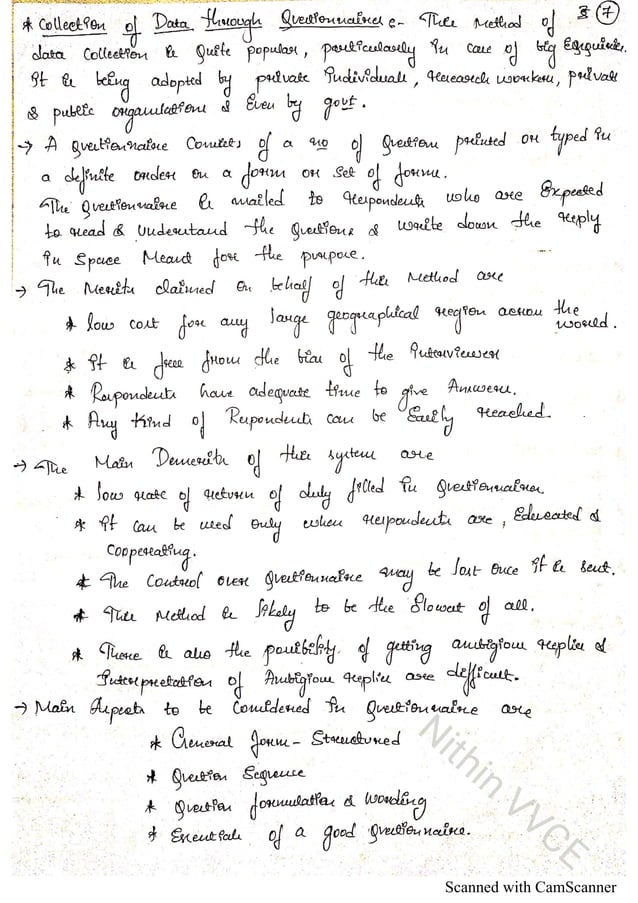 * Collection of Data through Questionnaires :- This Method of
3 7
data collection is Quite popular, particularly in case of big Enquiries.
It is being adopted by private individuals, research workers, private
& public organisations & Even by govt.
→ A questionnaire Consists of a no of question printed or typed in
a definite order on a form or set of forms.
The questionnaire is mailed to respondents who are Expected
to read & Understand the questions & write down the reply
in space Meant for the purpose.
→ The Merits claimed on behalf of this Method are
* low cost for any large geographical region across the world.
* It is free from the bias of the interviewer
* Respondents have adequate time to give Answers.
* Any kind of Respondents can be Easily reached.
→ The Main Demerits of this system are
* low rate of return of duly filled in Questionnaires
* It can be used only when respondents are, Educated &
Cooperating.
* The Control over Questionnaire may be lost once it is sent.
* This Method is likely to be the Slowest of all.
* There is also the possibility of getting ambigious replies &
Interpretation of Ambigious replies are defficult.
→ Main Aspects to be Considered in Questionnaire are
* General form - Structured
* Question Sequence
* Question formulation & wording
* Essentials of a good Questionnaire.
Nithin VVCE
Scanned with CamScanner